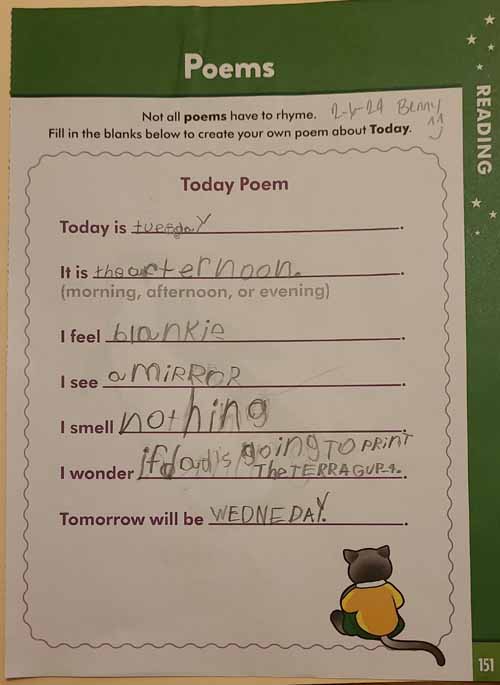 Poems
Not all poems have to rhyme. 2-6-24 Benny
Fill in the blanks below to create your own poem about Today.
READING
Today Poem
Today is tuesdaY.
It is the arternoon.
(morning, afternoon, or evening)
I feel blankie.
I see a MiRRoR.
I smell nothing.
I wonder if dad's going TO PRiNT
The TERRAGUP-4.
Tomorrow will be WEDNEDAY.
151